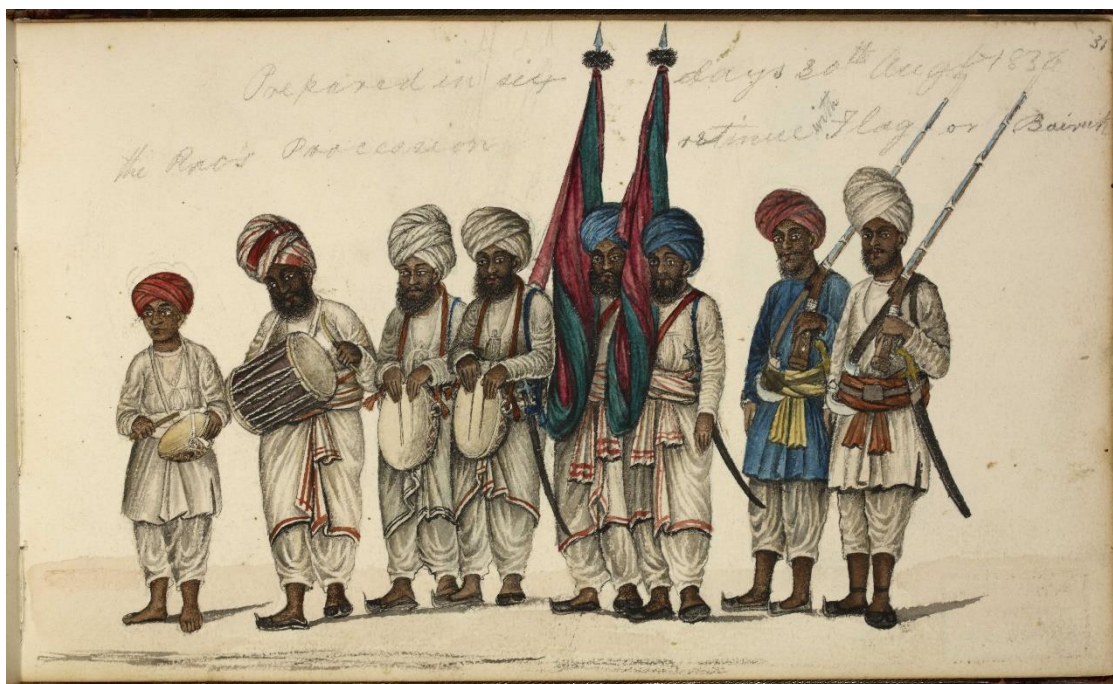 Prepared in six days 20th Augt 1838
the Rao's Procession retinue with Flag or Bairuk